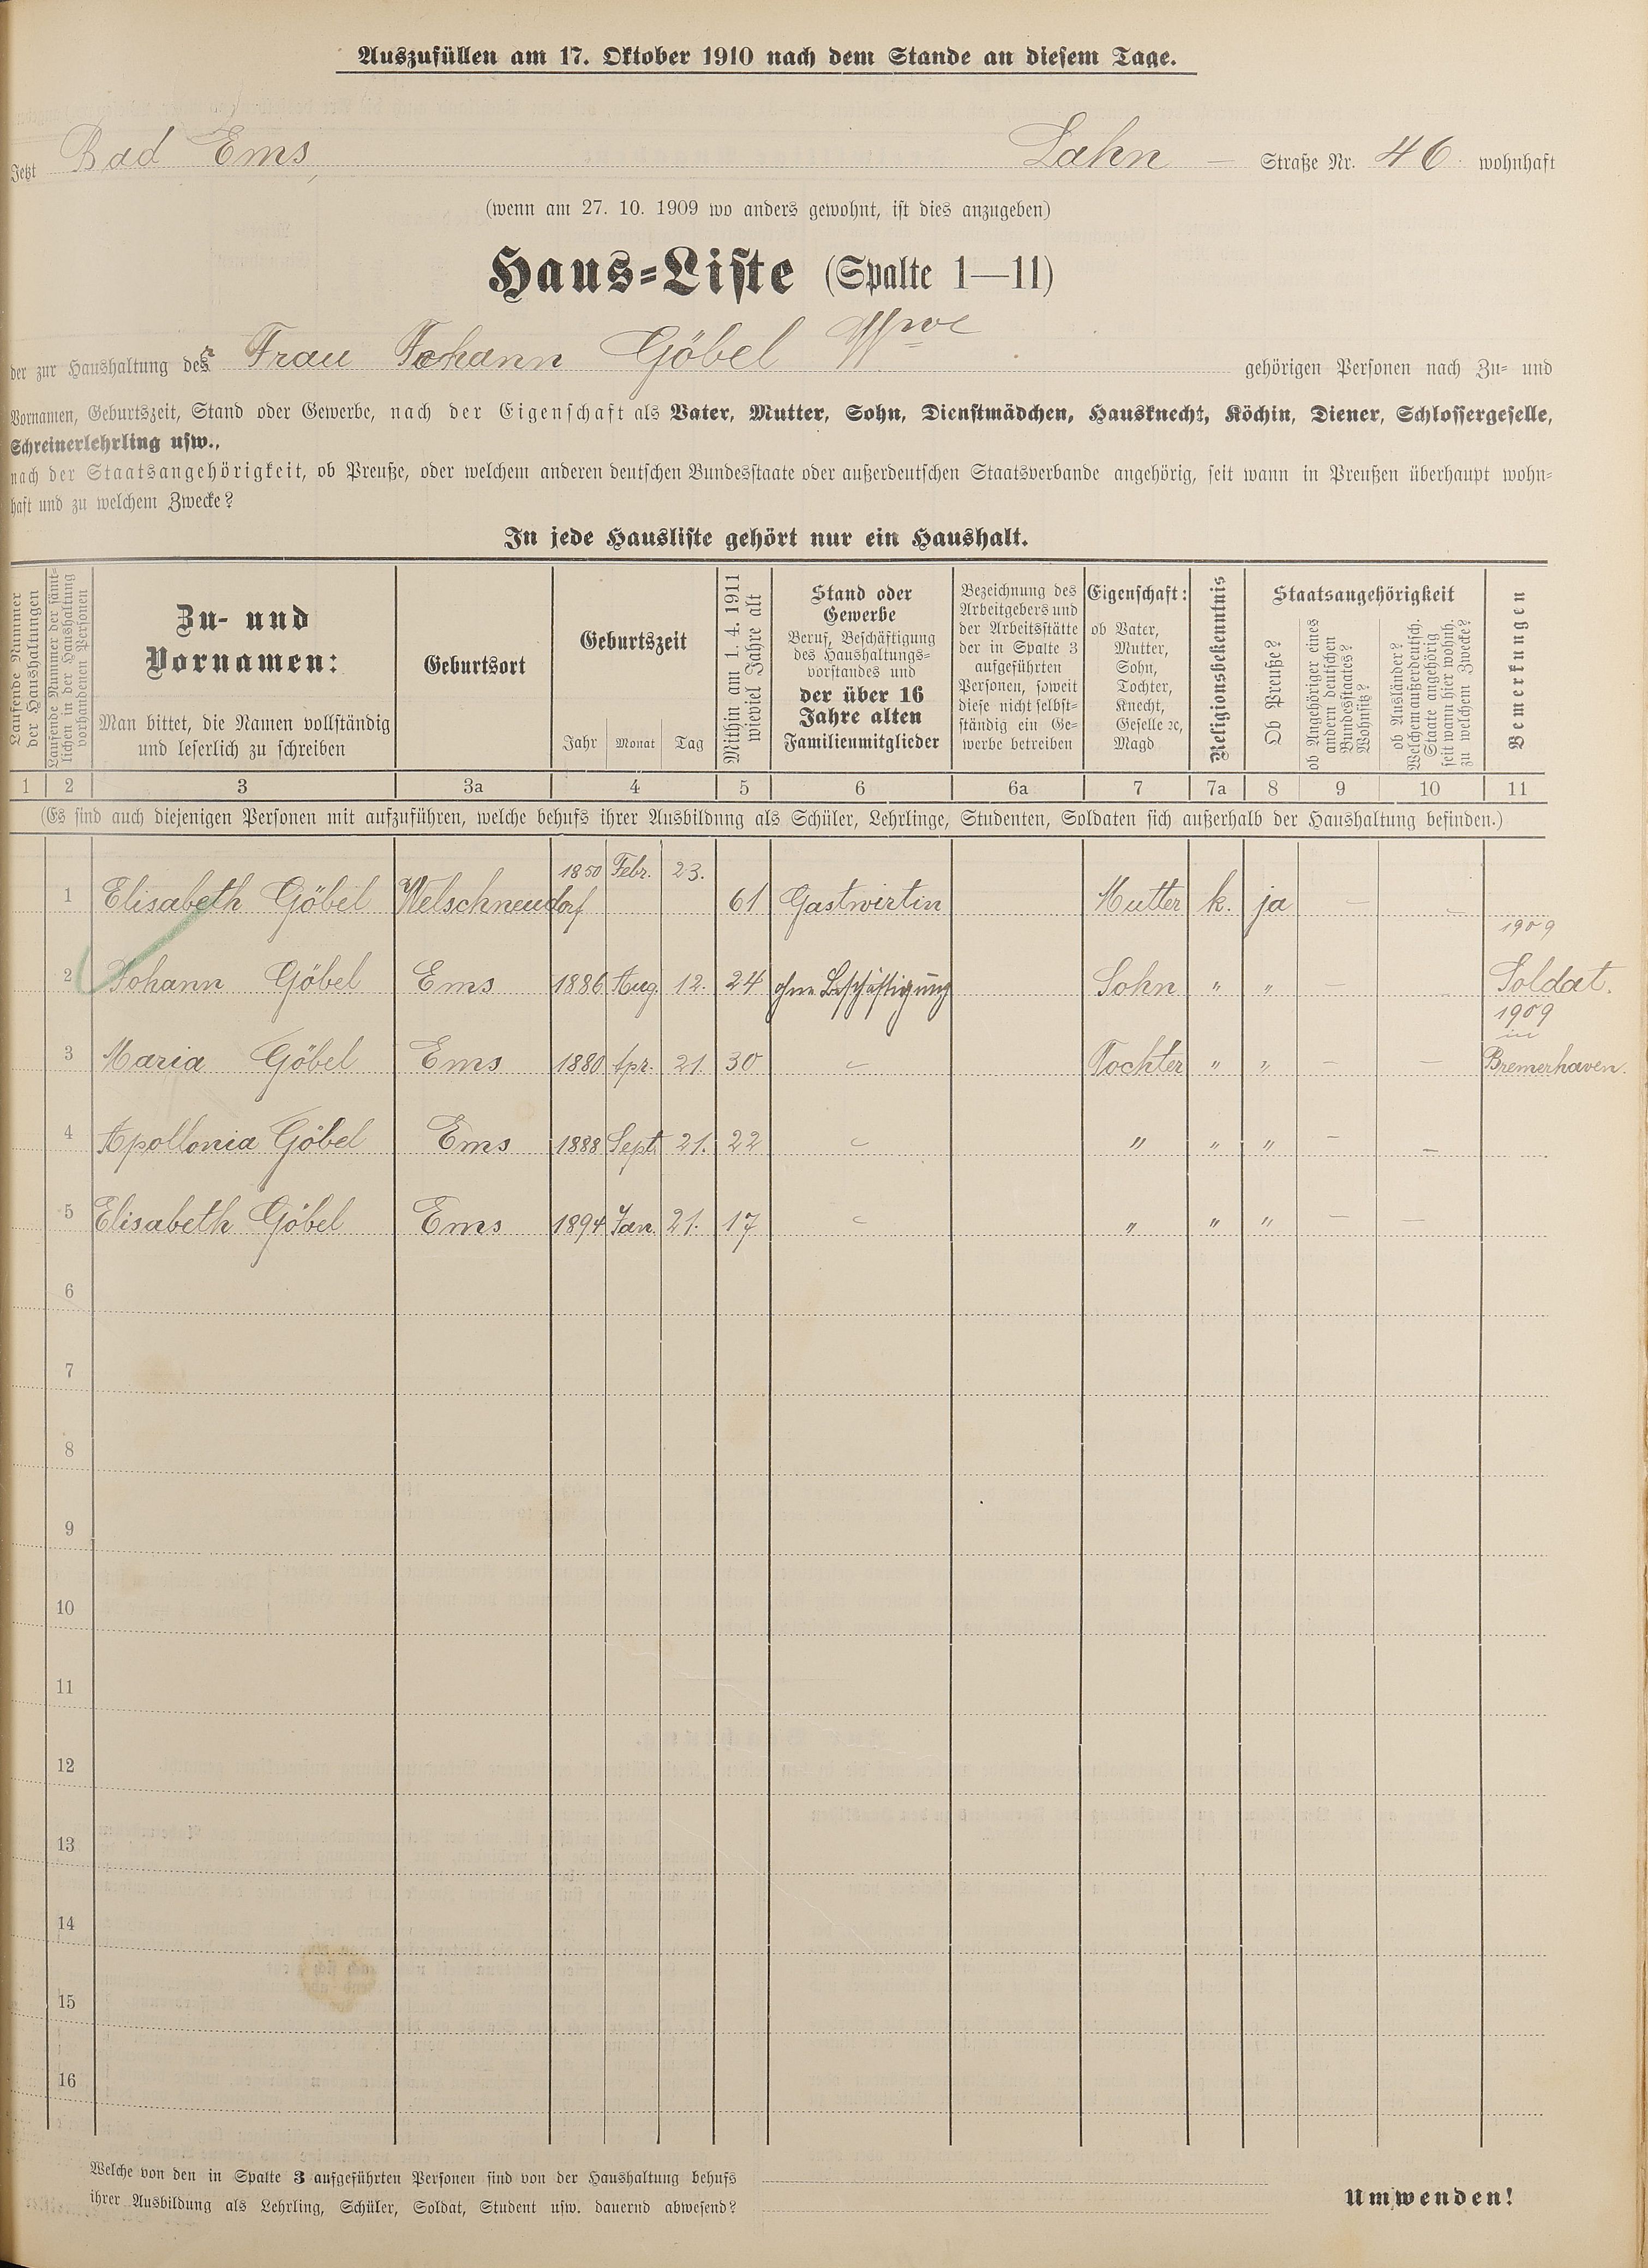 Auszufüllen am 17. Oktober 1910 nach dem Stande an diesem Tage.
Jetzt Bad Ems, Lahn - Straße Nr. 46 wohnhaft
(wenn am 27. 10. 1909 wo anders gewohnt, ist dies anzugeben)
Haus-Liste (Spalte 1—11)
der zur Haushaltung der Frau Johann Göbel Wwe gehörigen Personen nach Zu- und
Vornamen, Geburtszeit, Stand oder Gewerbe, nach der Eigenschaft als Vater, Mutter, Sohn, Dienstmädchen, Hausknecht, Köchin, Diener, Schlossergeselle,
Schreinerlehrling usw.,
nach der Staatsangehörigkeit, ob Preuße, oder welchem anderen deutschen Bundesstaate oder außerdeutschen Staatsverbande angehörig, seit wann in Preußen überhaupt wohn-
haft und zu welchem Zwecke?
In jede Hausliste gehört nur ein Haushalt.
Laufende Nummer
der Haushaltungen
Laufende Nummer der sämt-
lichen in der Haushaltung
vorhandenen Personen
Zu- und
Vornamen:
Man bittet, die Namen vollständig
und leserlich zu schreiben
Geburtsort
Geburtszeit
Jahr Monat Tag
Mithin am 1. 4. 1911
wieviel Jahre alt
Stand oder
Gewerbe
Beruf, Beschäftigung
des Haushaltungs-
vorstandes und
der über 16
Jahre alten
Familienmitglieder
Bezeichnung des
Arbeitgebers und
der Arbeitsstätte
der in Spalte 3
aufgeführten
Personen, soweit
diese nicht selbst-
ständig ein Ge-
werbe betreiben
Eigenschaft:
ob Vater,
Mutter,
Sohn,
Tochter,
Knecht,
Geselle ꝛc,
Magd
Religionsbekenntnis
Staatsangehörigkeit
Ob Preuße?
ob Angehöriger eines
andern deutschen
Bundesstaates?
Wohnsitz?
ob Ausländer?
Welchem außerdeutsch.
Staate angehörig
seit wann hier wohnh.
zu welchem Zwecke?
Bemerkungen
1 2 3 3a 4 5 6 6a 7 7a 8 9 10 11
(Es sind auch diejenigen Personen mit aufzuführen, welche behufs ihrer Ausbildung als Schüler, Lehrlinge, Studenten, Soldaten sich außerhalb der Haushaltung befinden.)
1 Elisabeth Göbel Welschneudorf 1850 Febr. 23. 61 Gastwirtin Mutter k. ja - -
1909
2 Johann Göbel Ems 1886 Aug. 12. 24 ohne Beschäftigung Sohn " " - Soldat.
1909
in
3 Maria Göbel Ems 1880 Apr. 21. 30 - Tochter " " - - Bremerhaven.
4 Apollonia Göbel Ems 1888 Sept. 21. 22 - " " " - -
5 Elisabeth Göbel Ems 1894 Jan. 21. 17 - " " " - -
6
7
8
9
10
11
12
13
14
15
16
Welche von den in Spalte 3 aufgeführten Personen sind von der Haushaltung behufs
ihrer Ausbildung als Lehrling, Schüler, Soldat, Student usw. dauernd abwesend?
Umwenden!